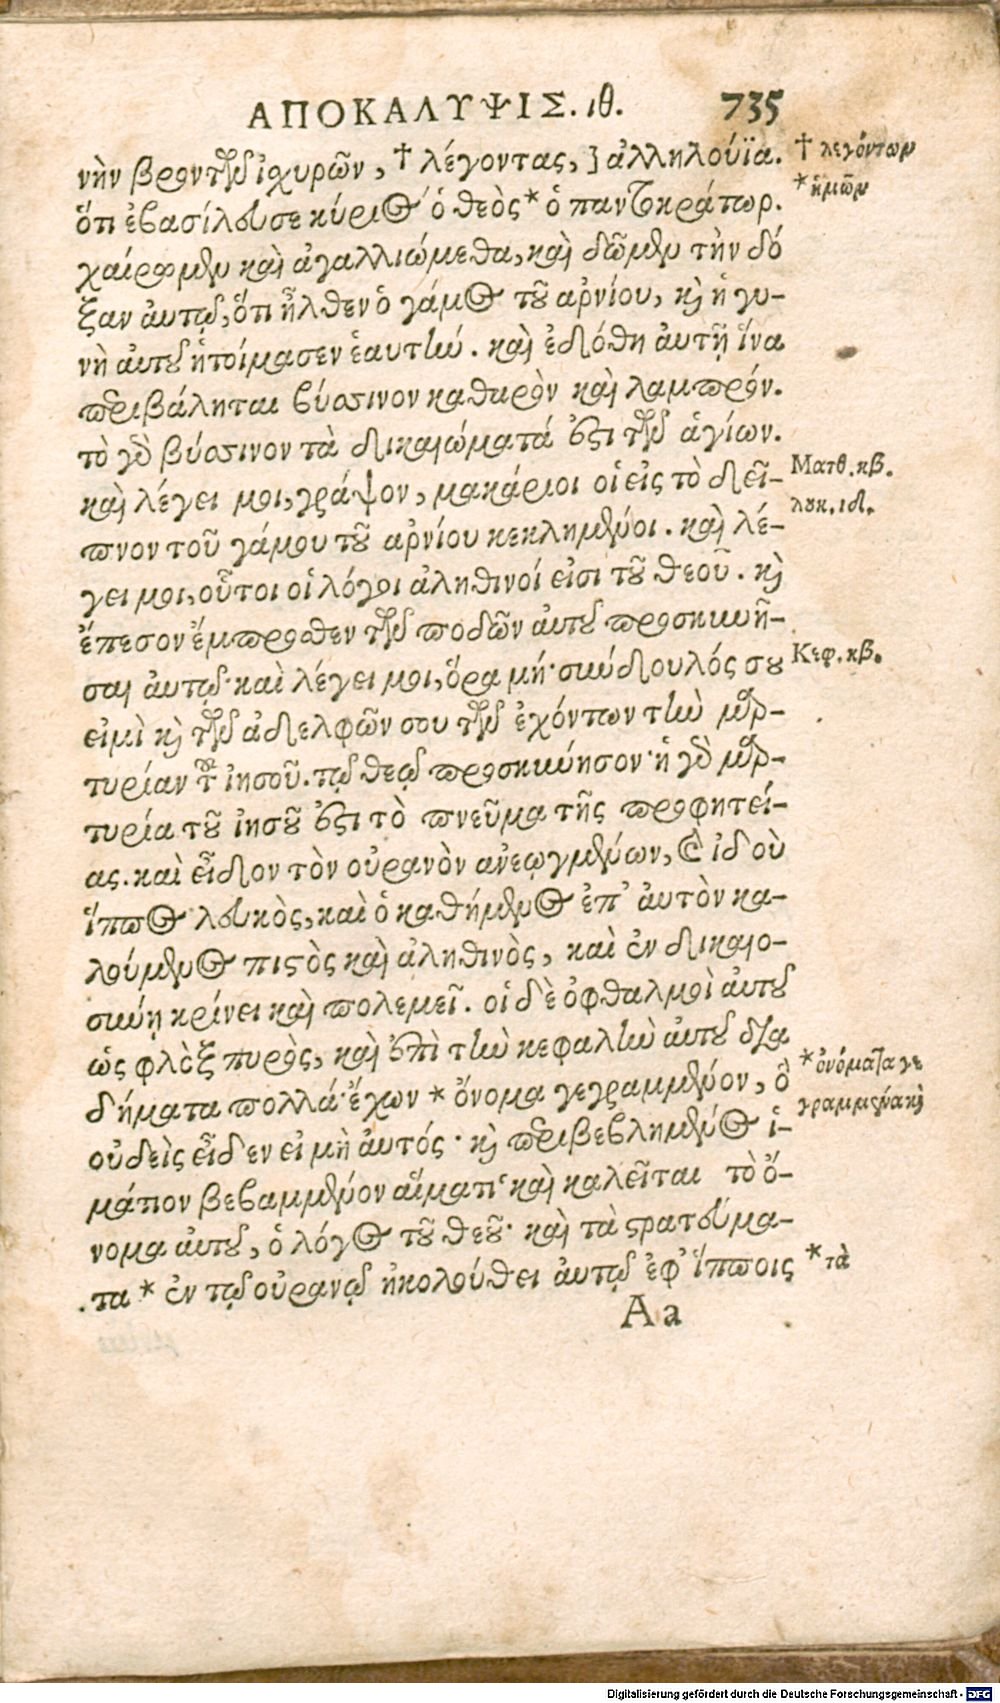 ΑΠΟΚΑΛΥΨΙΣ. ιθ. 735
νὴν βροντῶν ἰχυρῶν, † λέγοντας, ] ἀλληλούϊα. † λεγόντων
ὅτι ἐβασίλευσε κύριος ὁ θεὸς * ὁ παντοκράτωρ. * ἡμῶν
χαίρωμεν καὶ ἀγαλλιώμεθα, καὶ δῶμεν τὴν δό
ξαν ἀυτῷ, ὅτι ἦλθεν ὁ γάμος τοῦ αρνίου, κὶ ἡ γυ-
νὴ ἀυτοῦ ἡτοίμασεν ἑαυτήν. καὶ ἐδόθη ἀυτῇ ἵνα
περιβάληται βύσσινον καθαρὸν καὶ λαμπρόν.
τὸ γὰρ βύσσινον τὰ δικαιώματά ἐστι τῶν ἁγίων.
καὶ λέγει μοι, γράψον, μακάριοι οἱ εἰς τὸ δεῖ- Ματθ. κβ.
πνον τοῦ γάμου τοῦ αρνίου κεκλημένοι. καὶ λέ- λουκ. ιδ.
γει μοι, οὗτοι οἱ λόγοι ἀληθινοί εἰσι τοῦ θεοῦ. κὶ
ἔπεσον ἔμπροσθεν τῶν ποδῶν ἀυτοῦ προσκυνῆ-
σαι ἀυτῷ· καὶ λέγει μοι, ὅρα μή· σύνδουλός σου Κεφ. κβ.
εἰμὶ κὶ τῶν ἀδελφῶν σου τῶν ἐχόντων τὴν μαρ-
τυρίαν τοῦ ἰησοῦ. τῷ θεῷ προσκύνησον· ἡ γὰρ μαρ-
τυρία τοῦ ἰησοῦ ἐστι τὸ πνεῦμα τῆς προφητεί-
ας. καὶ εἶδον τὸν οὐρανὸν ανεῳγμένων, καὶ ἰδοὺ
ἵππος λευκὸς, καὶ ὁ καθήμενος ἐπ' ἀυτὸν κα-
λούμενος πιστὸς καὶ ἀληθινὸς, καὶ ἐν δικαιο-
σύνῃ κρίνει καὶ πολεμεῖ. οἱ δὲ ὀφθαλμοὶ ἀυτοῦ
ὡς φλὸξ πυρὸς, καὶ ἐπὶ τὴν κεφαλὴν ἀυτοῦ δια
δήματα πολλά· ἔχων * ὄνομα γεγραμμένον, ὃ * ὀνόματα γε
οὐδεὶς εἶδεν εἰ μὴ ἀυτός· κὶ περιβεβλημένος ἱ- γραμμένα κὶ
μάτιον βεβαμμένον αἵματι· καὶ καλεῖται τὸ ὄ-
νομα ἀυτοῦ, ὁ λόγος τοῦ θεοῦ· καὶ τὰ στρατεύμα-
τα * ἐν τῷ οὐρανῷ ἠκολούθει ἀυτῷ ἐφ' ἵπποις * τὰ
Aa
Digitalisierung gefördert durch die Deutsche Forschungsgemeinschaft - DFG